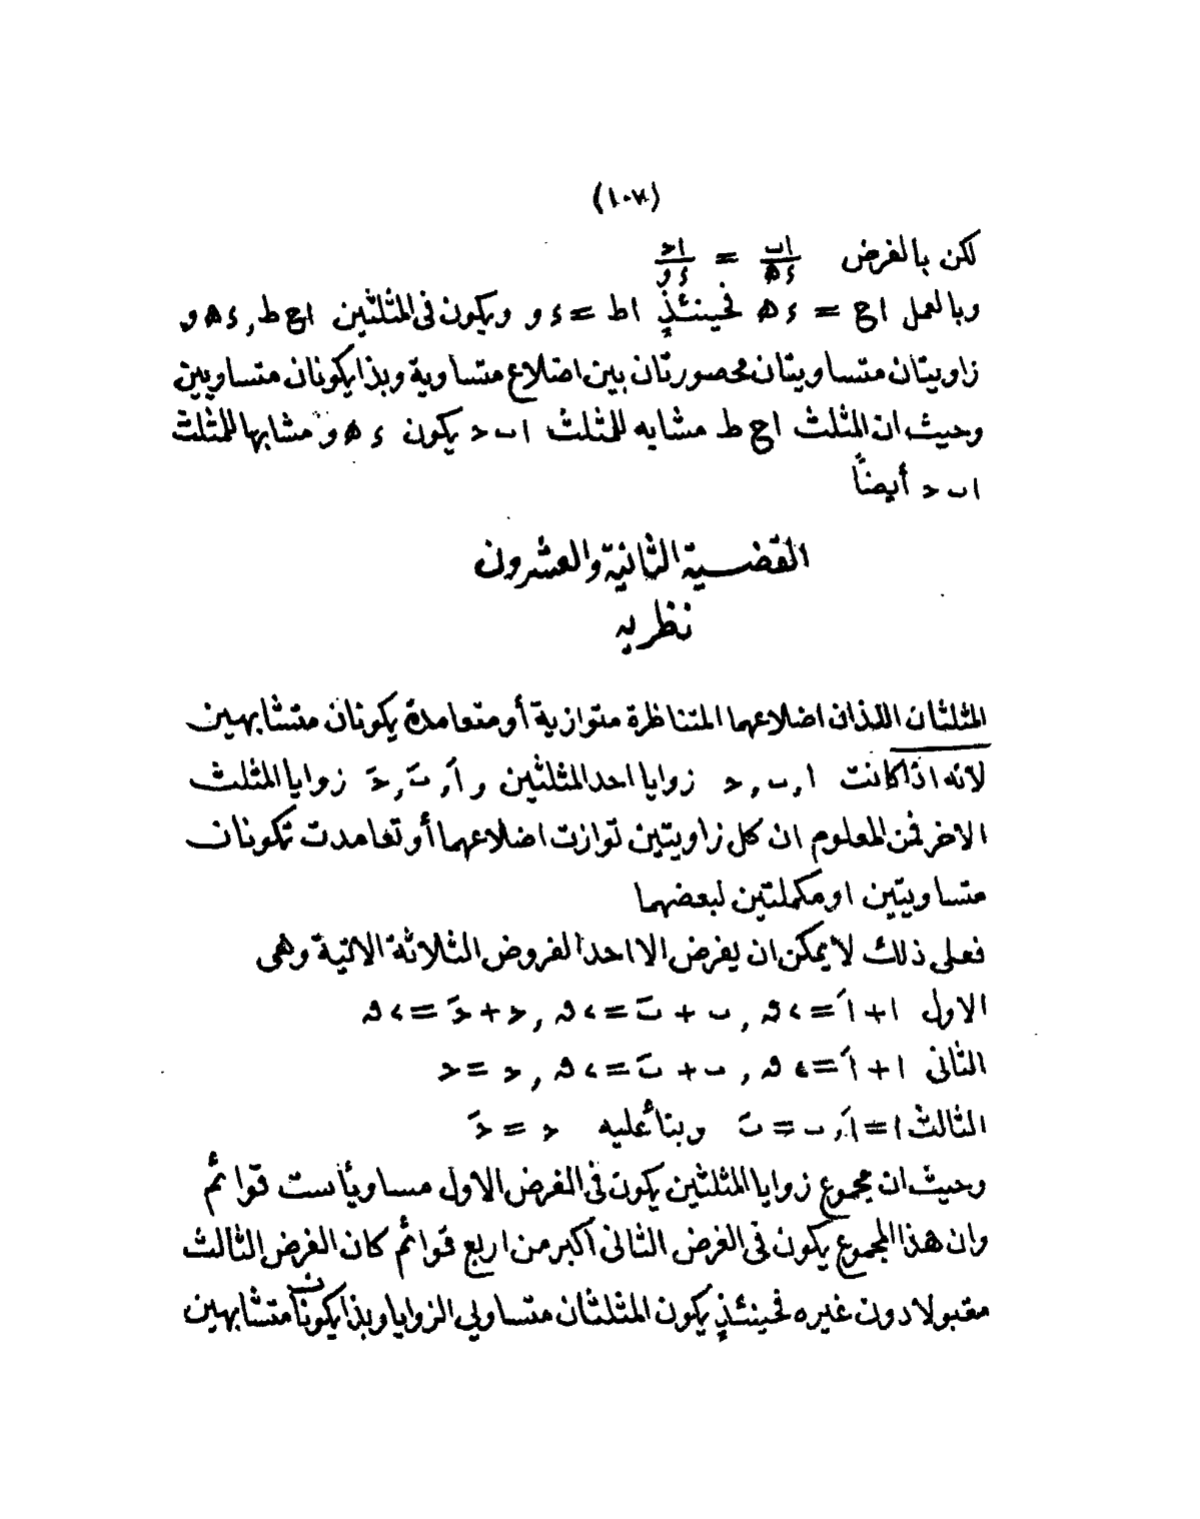 (١٠٧)
لكن بالفرض اب/ءه = اح/ءو
وبالعمل اج = ءه فحينئذٍ اط = ءو ويكون فى المثلثين اج ط , ءه و
زاويتان متساويتان محصورتان بين اضلاع متساوية وبذا يكونان متساويين
وحيث ان المثلث اج ط مشابه للمثلث ا ب ح يكون ء ه و مشابها للمثلث
ا ب ح أيضاً
القضية الثانية والعشرون
نظريه
المثلثان اللذان اضلاعهما المتناظرة متوازية أو متعامدة يكونان متشابهين
لانه اذا كانت ا , ب , ح زوايا احد المثلثين و اَ , بَ , حَ زوايا المثلث
الاخر فمن المعلوم ان كل زاويتين توازت اضلاعهما أو تعامدت تكونان
متساويتين او مكملتين لبعضهما
فعلى ذلك لا يمكن ان يفرض الا احد الفروض الثلاثة الاتية وهى
الاول ا + اَ = ٢ق , ب + بَ = ٢ق , ح + حَ = ٢ق
الثانى ا + اَ = ٢ق , ب + بَ = ٢ق , ح = ح
الثالث ا = اَ , ب = بَ وبنأعليه ح = حَ
وحيث ان مجموع زوايا المثلثين يكون فى الفرض الاول مساوياً ست قوائم
وان هذا المجموع يكون فى الفرض الثانى اكبر من اربع قوائم كان الفرض الثالث
مقبولا دون غيره فحينئذٍ يكون المثلثان متساويى الزوايا وبذا يكونان متشابهين